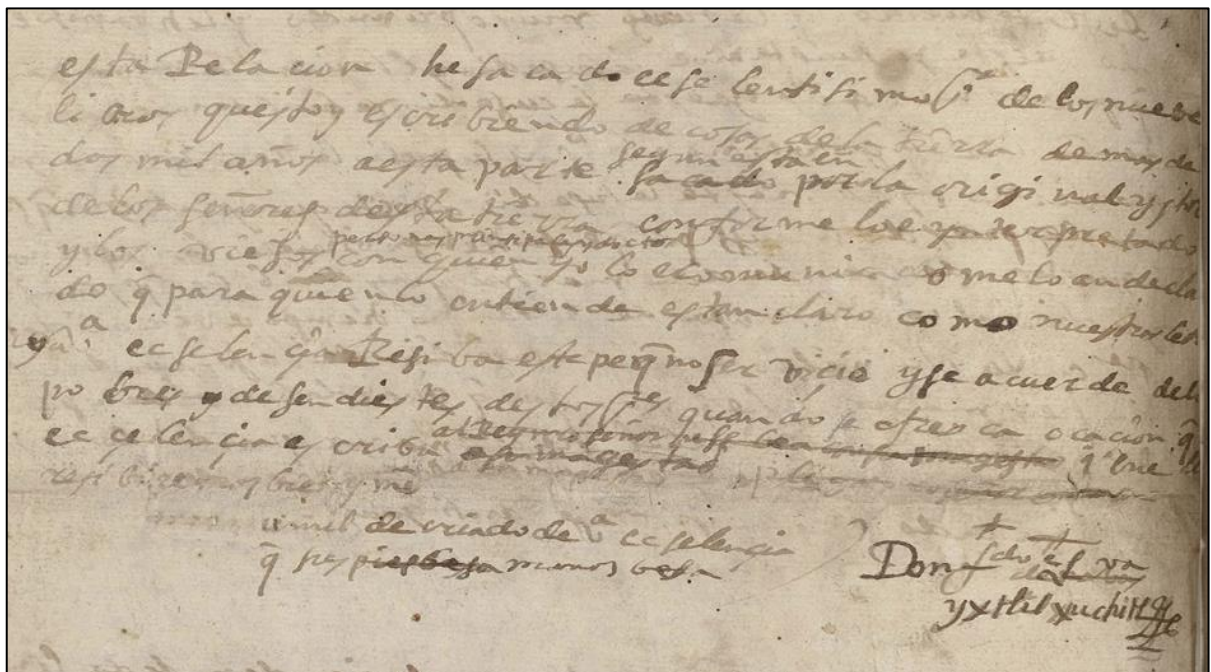 esta Relacion he sacado ecselentisimo sr de los nueve
libros questoy escribiendo de cosas de la tierra de mas de
dos mil años a esta parte segun esta en
sacado por la original ystor
de los señores desta tierra conforme loe ynterpretado
y los viejos personas
con quien yo lo e comunica o me lo an decla
do q̃ para quien lo entiende estan claro como nuestras let
va ecselençia Resiba este peqño servicio y se acuerde de l
pobres desendientes destos sres quando se ofresca ocaçion q̃
eccelençia escriba al Rey nro señor
a su magestad
resibiremos bien y md
umilde criado de va ecselençia
q̃ sus pies besa manos besa
Don fdo
de alva
yxtlilxuchitl